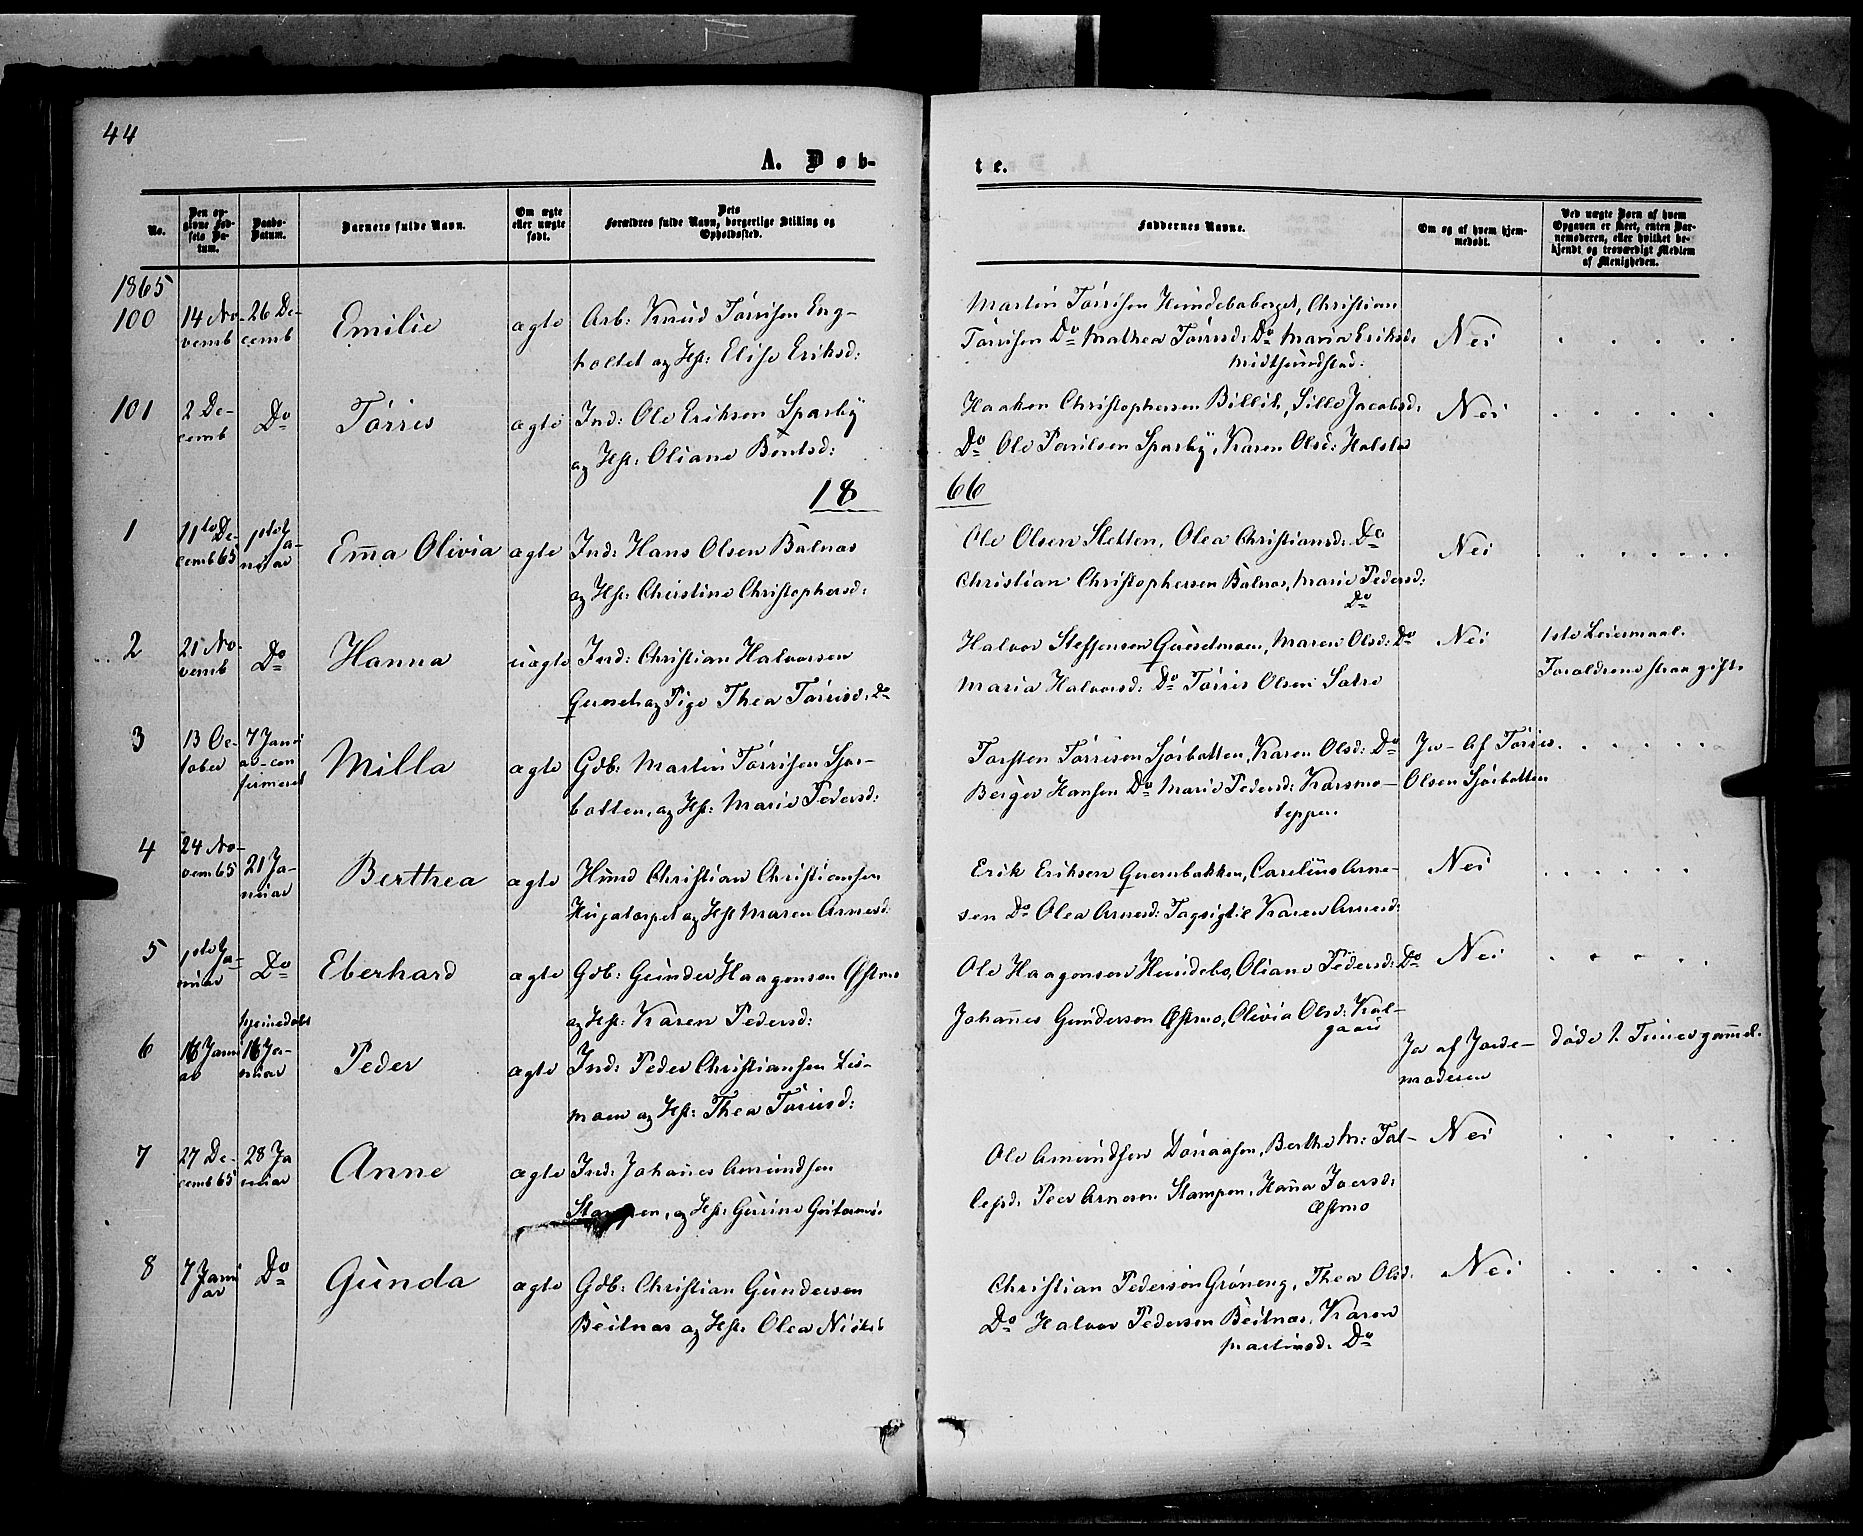 44
A. Døb-
te.
No.
Den op-
givne Fød-
sels Da-
tum.
Daabs-
Datum.
Barnets fulde Navn.
Om ægte
eller uægte
født.
Dets
Forældres fulde Navn, borgerlige Stilling og
Opholdssted.
Faddernes Navne.
Om og af hvem hjem-
medøbt.
Ved uægte Børn af hvem
Opgaven er skeet, enten Bar-
nemoderen, eller hvilket be-
kjendt og troværdigt Medlem
af Menigheden.
1865
100 14 No-
vemb 26 De-
cemb Emilie ægte Arb: Knud Tørrisen Eng-
holtet og Hst: Elise Eriksd:
Martin Tørrisen Hundeboberget, Christian
Tørrisen Do Mathea Tørrisd: Do Maria Eriksd:
Midtsundstad.
Nei
101 2 De-
cemb Do Tørris ægte Ind: Ole Eriksen Sparby
og Hst: Oliane Berntsd:
Haaken Christophersen Billit, Sille Jacobsd:
Do Ole Paulsen Sparby, Karen Olsd: Holste
Nei
18 66
1 11te De-
cemb 65 1ste Ja-
nuar Em̄a Olivia ægte Ind: Hans Olsen Balnæs
og Hst: Christine Christophersd:
Ole Olsen Sletten, Olea Christiansd: Do
Christian Christophersen Balnæs, Marie Pedersd:
Do
Nei
2 21 No-
vemb Do Hanna uægte Ind: Christian Halvorsen
og Pige Thea Tørrisd: Do
Halvor Steffensen Maren Olsd: Do
Maria Halvorsd: Do Tørris Olsen Sætre
Nei
1ste Leiermaal.
Forældrene strax gift.
3 13 Oc-
tober 7 Janu
ar-con
firmeret Milla ægte Gdb: Martin Tørrisen Sjør-
botten, og Hst: Marie Pedersd:
Torsten Tørrisen Sjørbotten, Karen Olsd: Do
Berger Hansen Do Marie Pedersd: Karsmo-
teppen.
Ja- Af Tørris
Olsen Sjørbotten
4 24 No-
vem 65 21 Ja-
nuar Berthea ægte Husmd Christian Christiansen
og Hst Maren Arnesd:
Erik Eriksen Quernbakken, Carelius Arne-
sen Do Olea Arnesd: Karen Arnesd:
Nei
5 1ste Ja-
nuar Do Eberhard ægte Gdb: Gunder Haagensen Østmo
og Hst: Karen Pedersd:
Ole Haagensen Hundebo, Oliane Pedersd: Do
Johan̄es Gundersen Østmo, Olivia Olsd: Kval-
gaard
Nei
6 16 Janu
ar hjemedøbt
16 Ja-
nuar Peder ægte Ind: Peder Christiansen Lis-
moen og Hst: Thea Tørrisd:
Ja af Jorde-
moderen
døde 2 Timer gam̄el.
7 27 De-
cemb 65 28 Ja
nuar Anne ægte Ind: Johan̄es Amundsen
Stampen, og Hst: Gurine
Ole Amundsen Berthe M: Tol-
lefsd: Peer Arnesen Stampen, Han̄a Iversd:
Østmo
Nei
8 7 Janu
ar Do Gunda ægte Gdb: Christian Gundersen
Beitnæs og Hst: Olea
Christian Pedersen Grøneng, Thea Olsd:
Do Halvor Pedersen Beitnæs, Karen
Martinsd: Do
Nei